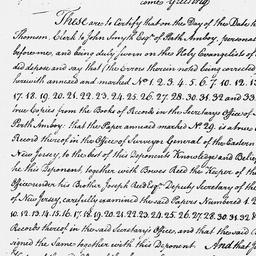 These are to Certify that on the Day of the Date
Thomson, Clerk to John Smyth Esqr. of Perth Amboy, personal
before me, and being duly sworn on the Holy Evangelists of
did depose and say that (the Errors therein noted being corrected
herewith annexed and marked No. 1. 2. 3. 4. 5. 6. 7. 10. 12. 13
17. 18. 19. 20. 21. 22. 23. 24. 25. 26. 27. 28. 30. 31. 32 and 33
true Copies from the Books of Records in the Secretarys Office of
Perth Amboy: that the Paper annexed marked No. 29. is a true
Record thereof in the Office of Surveyor General of the Eastern
New Jersey, to the best of this Deponents Knowledge and Belief
he this Deponent, together with Bowes Reed the Keeper of the
Office under his Brother Joseph Reed Esqr. Deputy Secretary of the
of New Jersey, carefully examined the said Papers Numbered 1. 2
10. 12. 13. 14. 15. 16. 17. 18. 19. 20. 21. 22. 23. 24. 25. 26. 27. 28. 30. 31. 32
Records thereof in the said Secretarys Office, and that the said
signed the Same together with this Deponent. And that